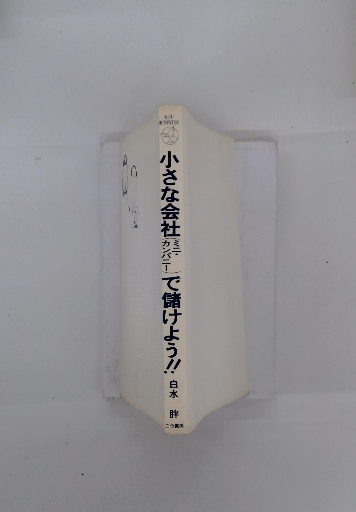 小さな会社
ミニ・
カンパニー
で儲けよう!!
白水 胖
こう書房